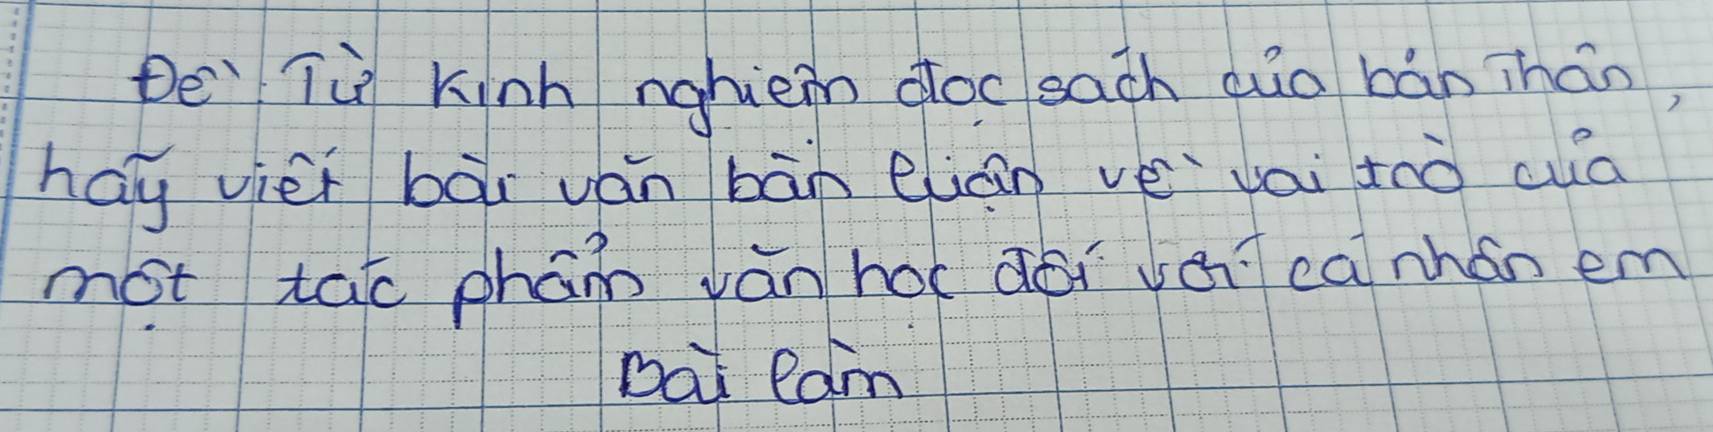 Đề: Từ kinh nghiệm đọc sách của bản thân,
hãy viết bài văn bàn luận về vai trò của
một tác phẩm văn học đối với cá nhân em
Bài làm